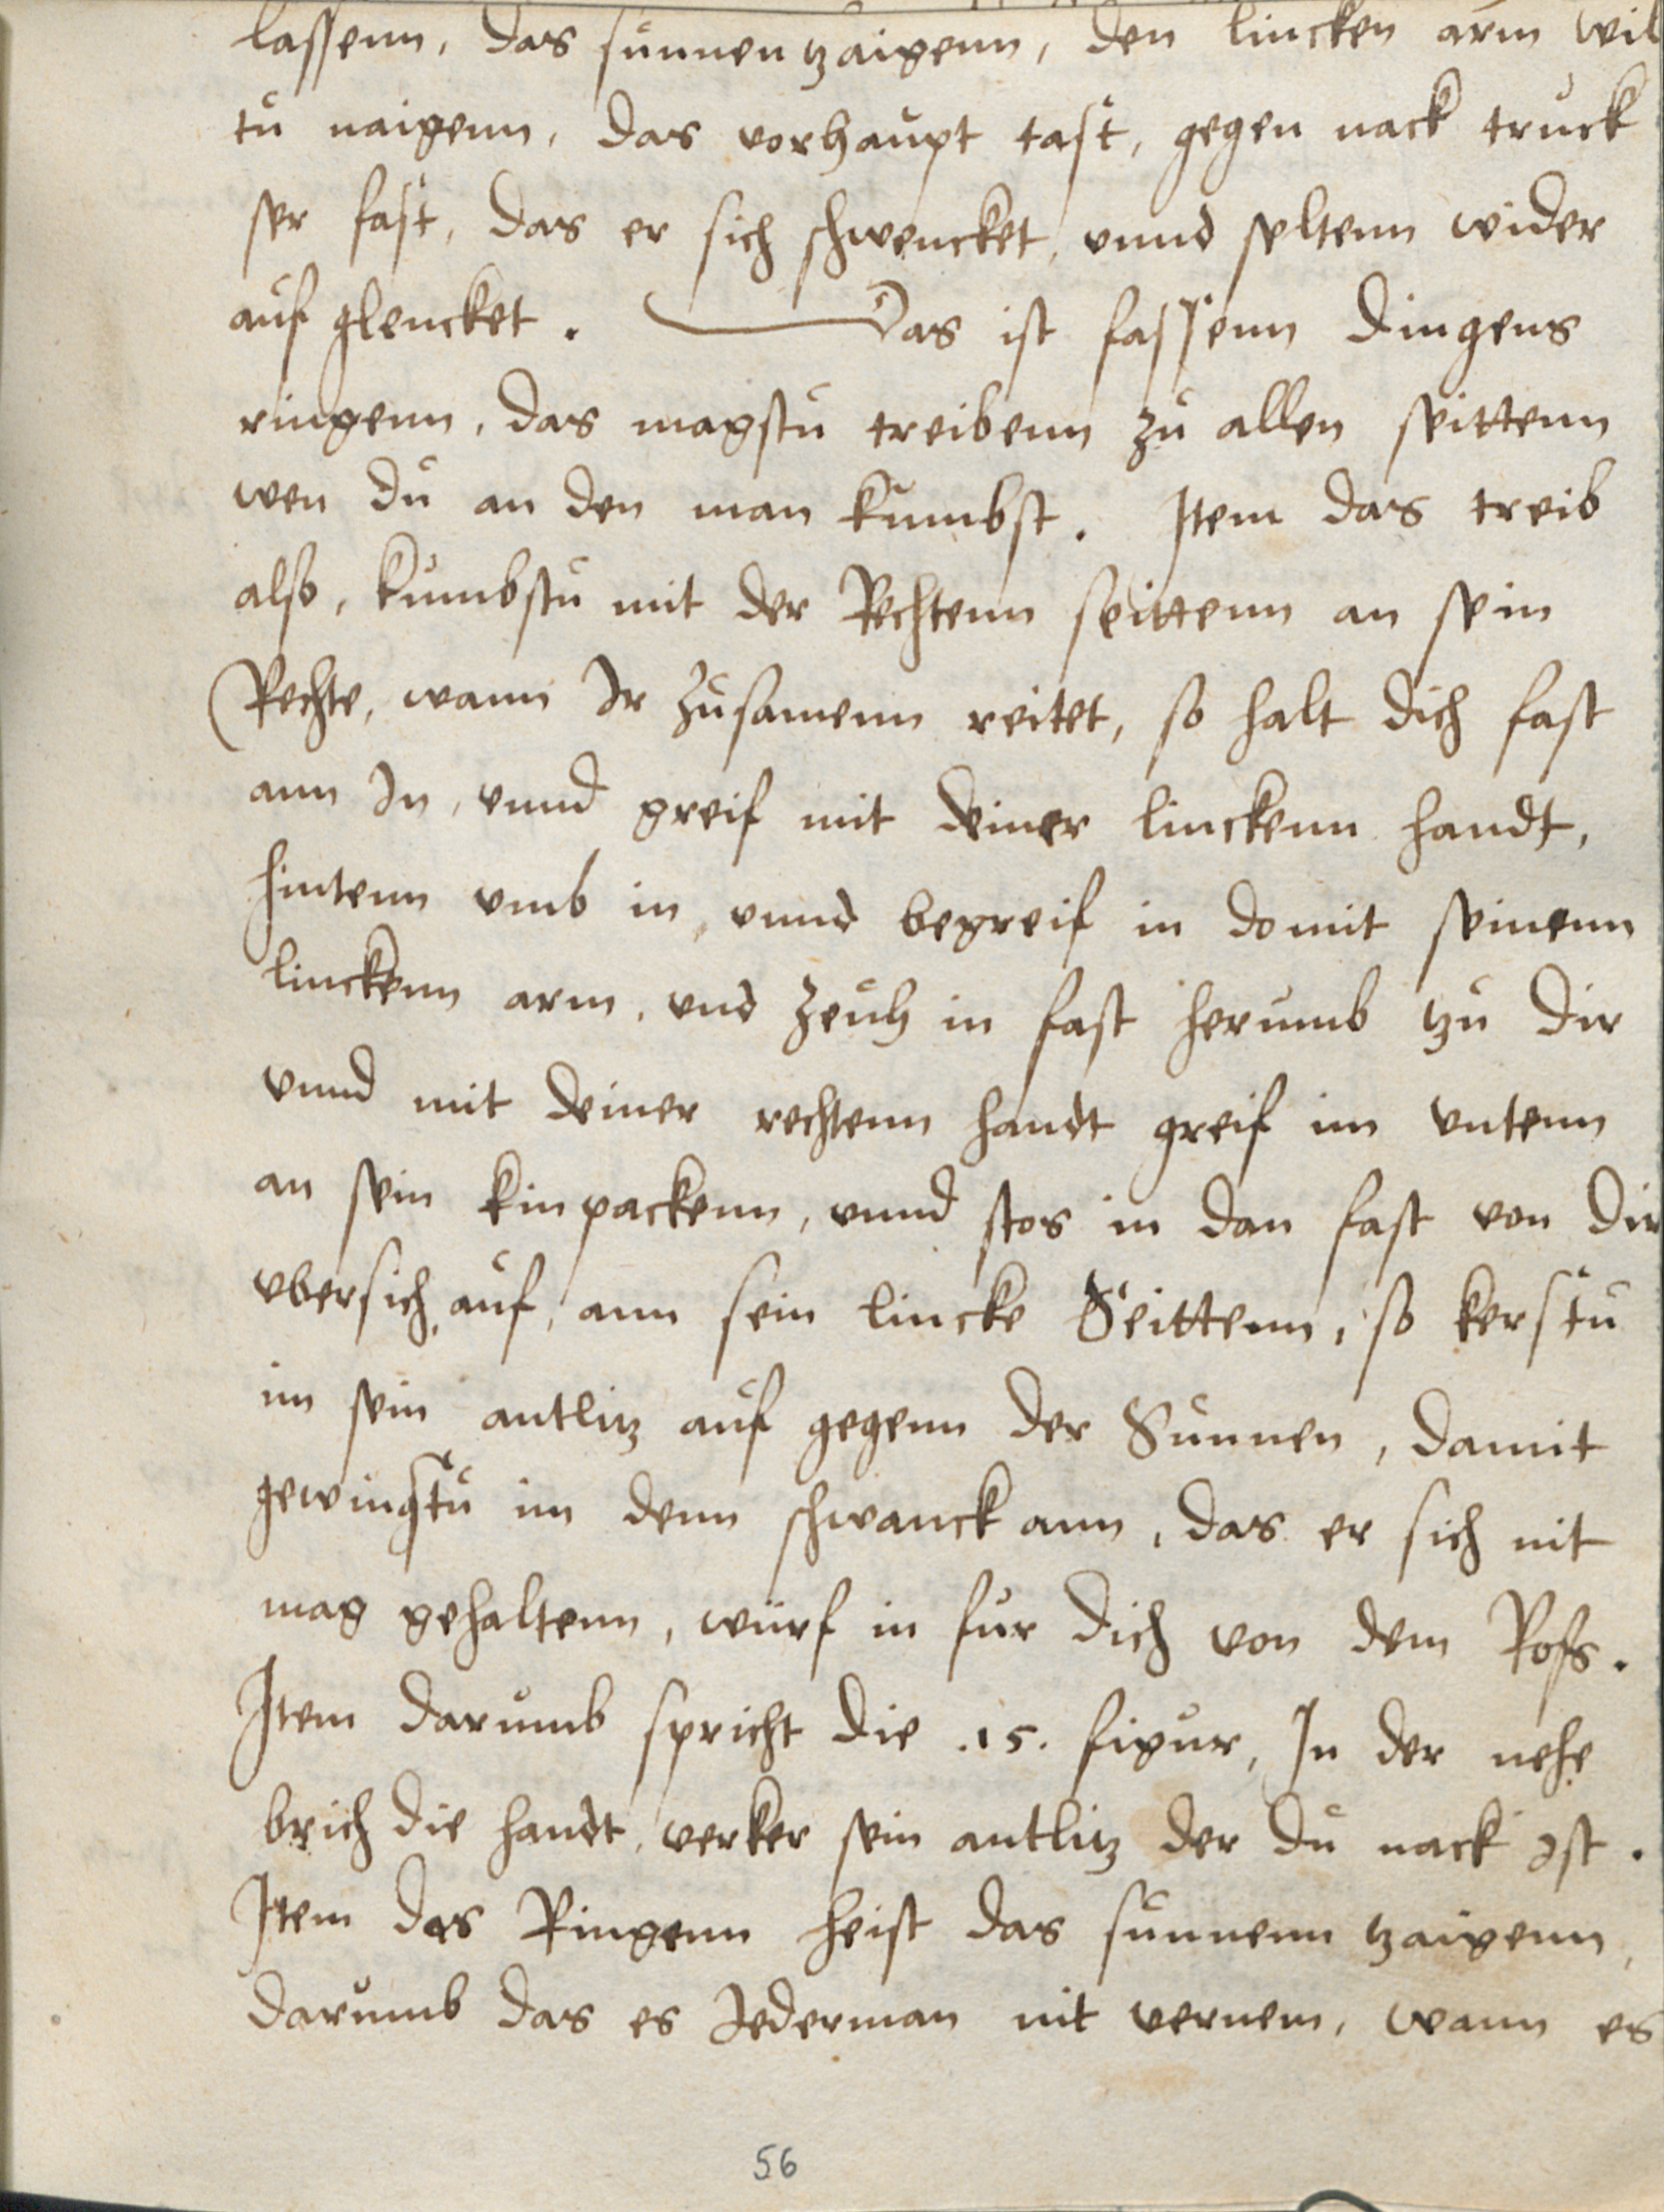 lassenn, das sunnen tzaigenn, den lincken arm wil
tu naigenn, das vorhaupt tast, gegen nack truck
ser fast, das er sich schwencket, vnnd seltenn wider
auf glencket. Das ist fassenn Dingens
ringenn, das magstu treibenn zu allen seittenn
wen du an den man kumbst. Item das treib
also, kumbstu mit der Rechtenn seittenn an sein
Rechte, wann Ir zusamenn reitet, so halt dich fast
ann In, vnnd greif mit deiner linckenn handt,
hintenn vmb in, vnnd begreif in domit seinenn
linckenn arm, vnd zeuh in fast herumb tzu dir
vnnd mit deiner rechtenn handt greif im vntenn
an sein kinpackenn, vnnd stos in dan fast von dir
vbersich auf, ann sein lincke Seittenn, so kerstu
im sein antlitz auf gegenn der Sunnen, damit
gewingstu im denn schwanck ann, das er sich nit
mag gehaltenn, würf in fur dich von dem Ross.
Item darumb spricht die .15. figur, In der nehe
brich die handt, verker sein antlitz der du nack ist.
Item das Ringenn heist das sunnenn tzaigenn,
darumb das es Jederman nit vernem, wann es
56